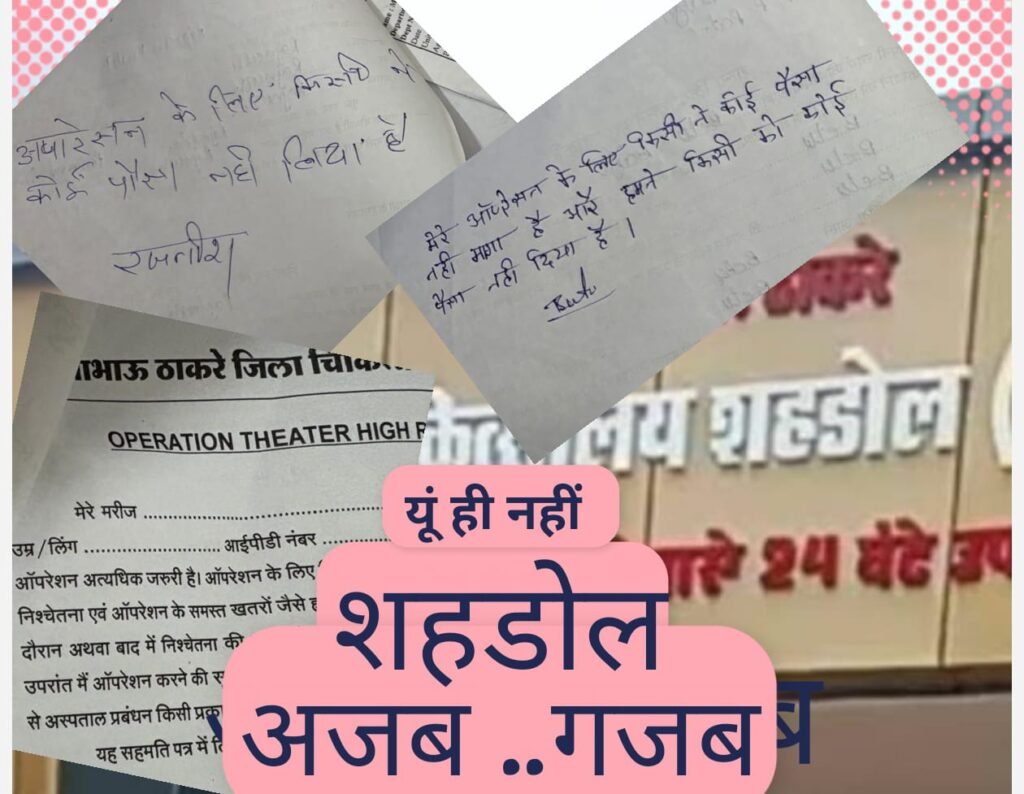 अपारेसन के लिए किसी ने
कोई पैसा नही लिया है
रजनीश
मेरे ऑपरेसन के लिए किसी ने कोई पैसा
नही मांगा है और हमने किसी को कोई
पैसा नही दिया है ।
ाभाऊ ठाकरे जिला चिकि
OPERATION THEATER HIGH R
मेरे मरीज
उम्र / लिंग आईपीडी नंबर
ऑपरेशन अत्यधिक जरुरी है। ऑपरेशन के लिए
निश्चेतना एवं ऑपरेशन के समस्त खतरों जैसे
दौरान अथवा बाद में निश्चेतना की
उपरांत मैं ऑपरेशन करने की
से अस्पताल प्रबंधन किसी प्रका
यह सहमति पत्र में
ठाकरे
शहडोल
24 घंटे उप
यूं ही नहीं
शहडोल
अजब ..गजब